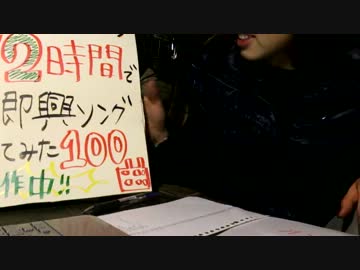 2時間で
即興ソング
てみた100
作中!!